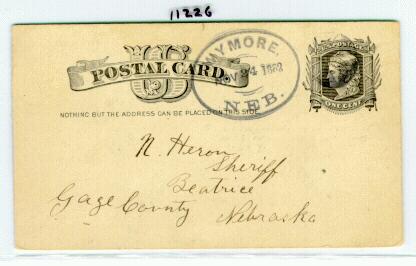 11226
U.S. POSTAGE
WYMORE,
POSTAL CARD
NOV 24 1883
NEB.
ONE CENT
NOTHING BUT THE ADDRESS CAN BE PLACED ON THIS SIDE
N. Heron
Sheriff
Beatrice
Gage County Nebraska